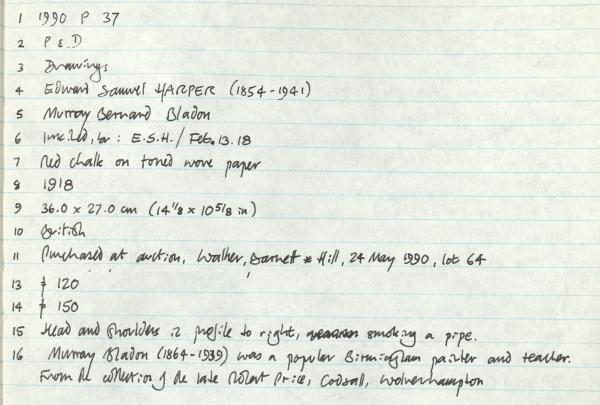 1 1990 P 37
2 P & D
3 Drawings
4 Edward Samuel HARPER (1854-1941)
5 Murray Bernard Bladon
6 Inscribed, br: E.S.H./ Feb.13.18
7 Red chalk on toned wove paper
8 1918
9 36.0 x 27.0 cm (14 1/8 x 10 5/8 in)
10 British
11 Purchased at auction, Walker, Barnett & Hill, 24 May 1990, lot 64
13 £ 120
14 £ 150
15 Head and Shoulders in profile to right, smoking a pipe.
16 Murray Bladon (1864-1939) was a popular Birmingham painter and teacher.
From the collection of the late Robert Price, Codsall, Wolverhampton